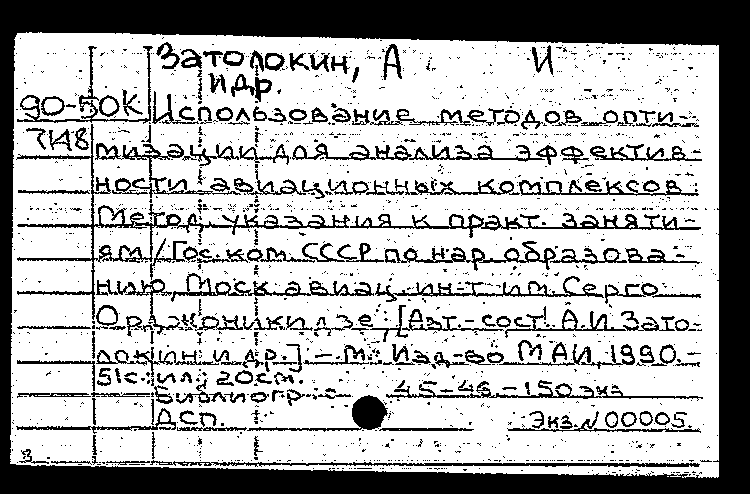 Затолокин, А И
и др.
90-50К Использование методов опти-
7148 мизации для анализа эффектив-
ности авиационных комплексов:
Метод. указания к практ. заняти-
ям / Гос. ком. СССР по нар. образова-
нию, Моск. авиац. ин-т им. Серго
Орджоникидзе; [Авт.-сост. А.И. Зато-
локин и др.]. - М.: Изд-во МАИ, 1990. -
51с.: ил.; 20см.
Библиогр.: с. 45-46. - 150 экз
ДСП. Экз. N 00005.